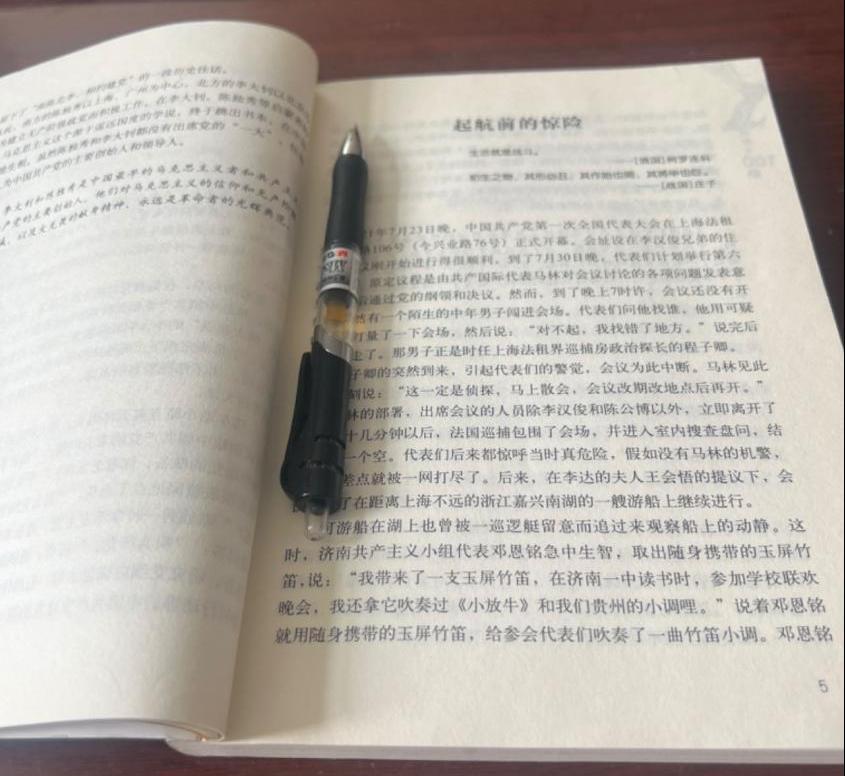 "南陈北李，相约建党"的一段历史佳话。
起航前的惊险
生活就是战斗。
——[俄国]柯罗连科
始生之物，其形必丑，其作始也简，其将毕也巨。
——[战国]庄子
年7月23日晚，中国共产党第一次全国代表大会在上海法租
路106号（今兴业路76号）正式开幕，会址设在李汉俊兄弟的住
议刚开始进行得很顺利，到了7月30日晚，代表们计划举行第六
原定议程是由共产国际代表马林对会议讨论的各项问题发表意
后通过党的纲领和决议。然而，到了晚上7时许，会议还没有开
然有一个陌生的中年男子闯进会场。代表们问他找谁，他用可疑
打量了一下会场，然后说："对不起，我找错了地方。"说完后
走了。那男子正是时任上海法租界巡捕房政治探长的程子卿。
子卿的突然到来，引起代表们的警觉，会议为此中断。马林见此
刻说："这一定是侦探，马上散会，会议改期改地点后再开。"
林的部署，出席会议的人员除李汉俊和陈公博以外，立即离开了
十几分钟以后，法国巡捕包围了会场，并进入室内搜查盘问，结
一个空。代表们后来都惊呼当时真危险，假如没有马林的机警，
差点就被一网打尽了。后来，在李达的夫人王会悟的提议下，会
了在距离上海不远的浙江嘉兴南湖的一艘游船上继续进行。
可游船在湖上也曾被一巡逻艇留意而追过来观察船上的动静。这
时，济南共产主义小组代表邓恩铭急中生智，取出随身携带的玉屏竹
笛，说："我带来了一支玉屏竹笛，在济南一中读书时，参加学校联欢
晚会，我还拿它吹奏过《小放牛》和我们贵州的小调哩。"说着邓恩铭
就用随身携带的玉屏竹笛，给参会代表们吹奏了一曲竹笛小调。邓恩铭
5